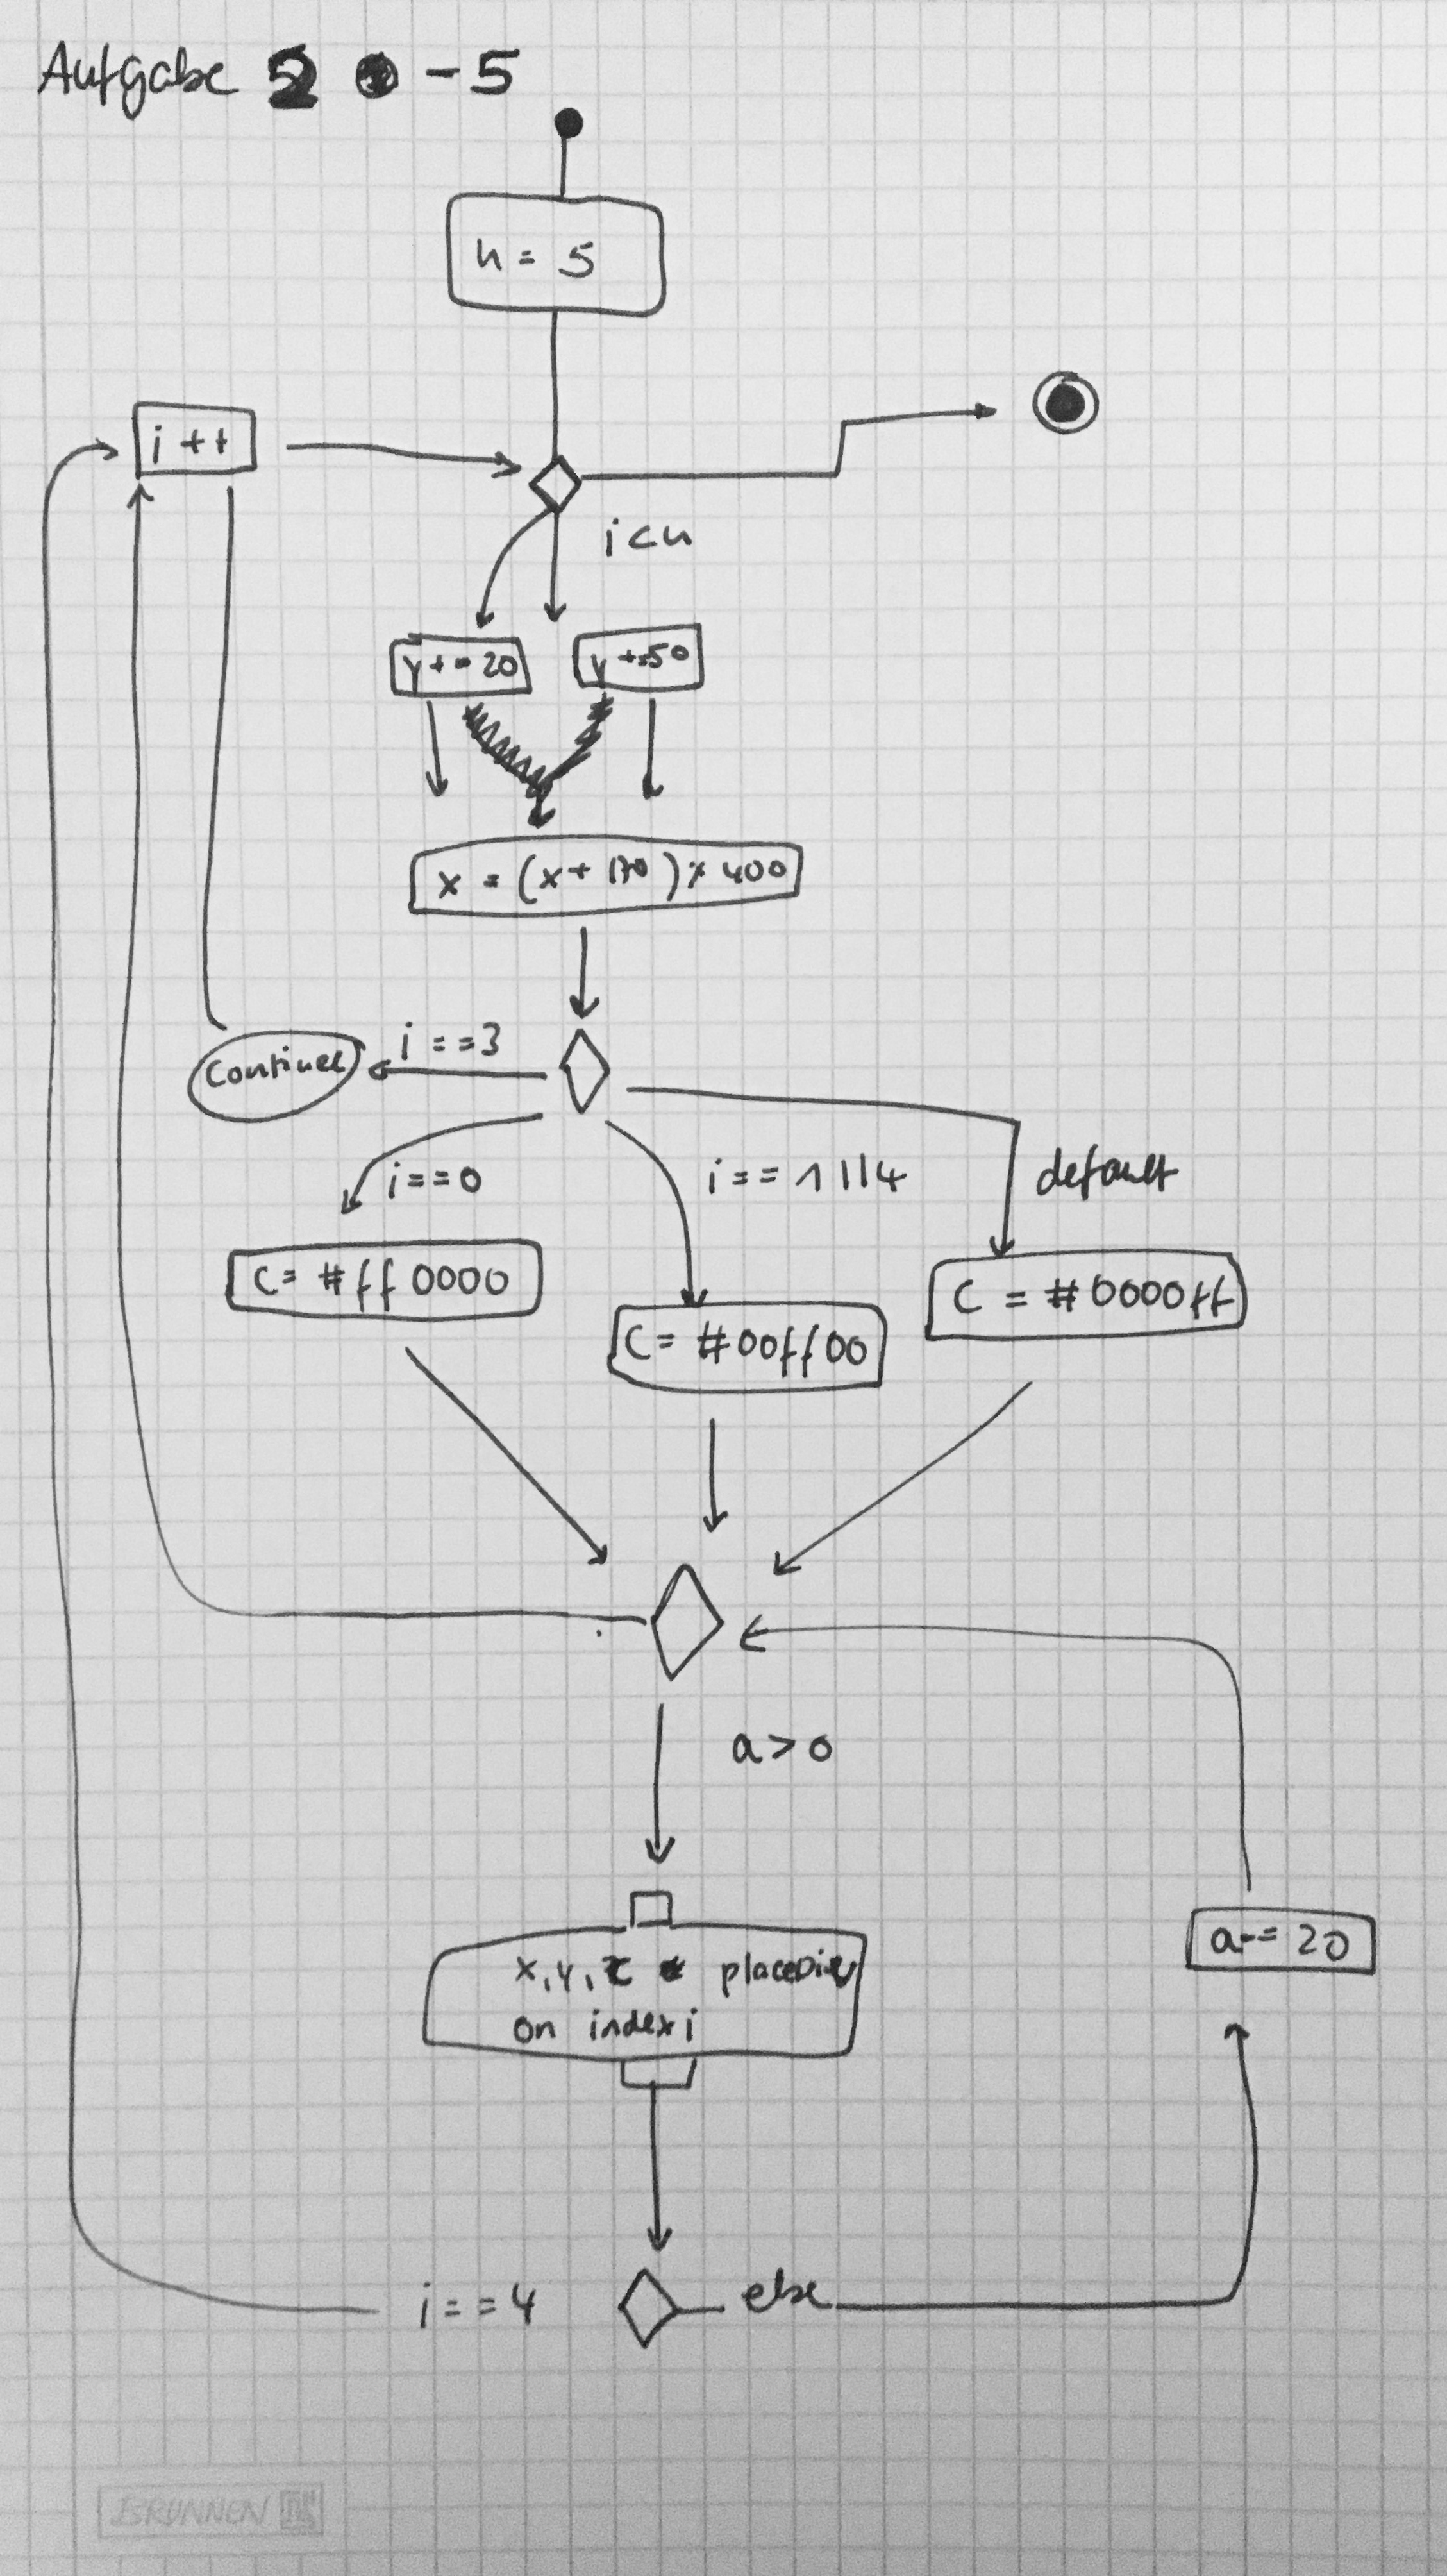 Aufgabe 2 - 5
n = 5
i ++
i < n
y += 20
y += 50
x = (x + 170) % 400
i == 3
continue
i == 0
i == 1 || 4
default
C = #ff0000
C = #00ff00
C = #0000ff
a > 0
x, y, c placeDiv
on index i
a -= 20
i == 4
else
BRUNNEN